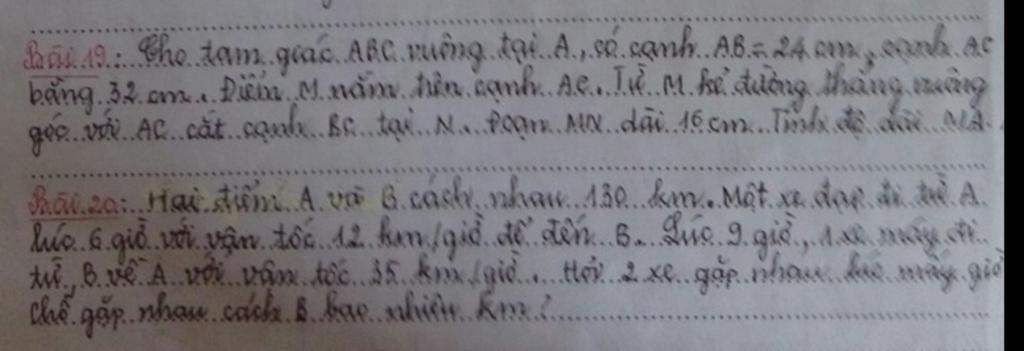 Bài 19: Cho tam giác ABC vuông tại A, có cạnh AB = 24 cm, cạnh AC
bằng 32 cm. Điểm M nằm trên cạnh AC. Từ M kẻ đường thẳng vuông
góc với AC cắt cạnh BC tại N. Đoạn MN dài 16 cm. Tính độ dài MA.
Bài 20: Hai điểm A và B cách nhau 130 km. Một xe đạp đi từ A
lúc 6 giờ với vận tốc 12 km/giờ để đến B. Lúc 9 giờ, 1 xe máy đi
từ B về A với vận tốc 35 km/giờ. Hỏi 2 xe gặp nhau lúc mấy giờ
Chỗ gặp nhau cách B bao nhiêu km?